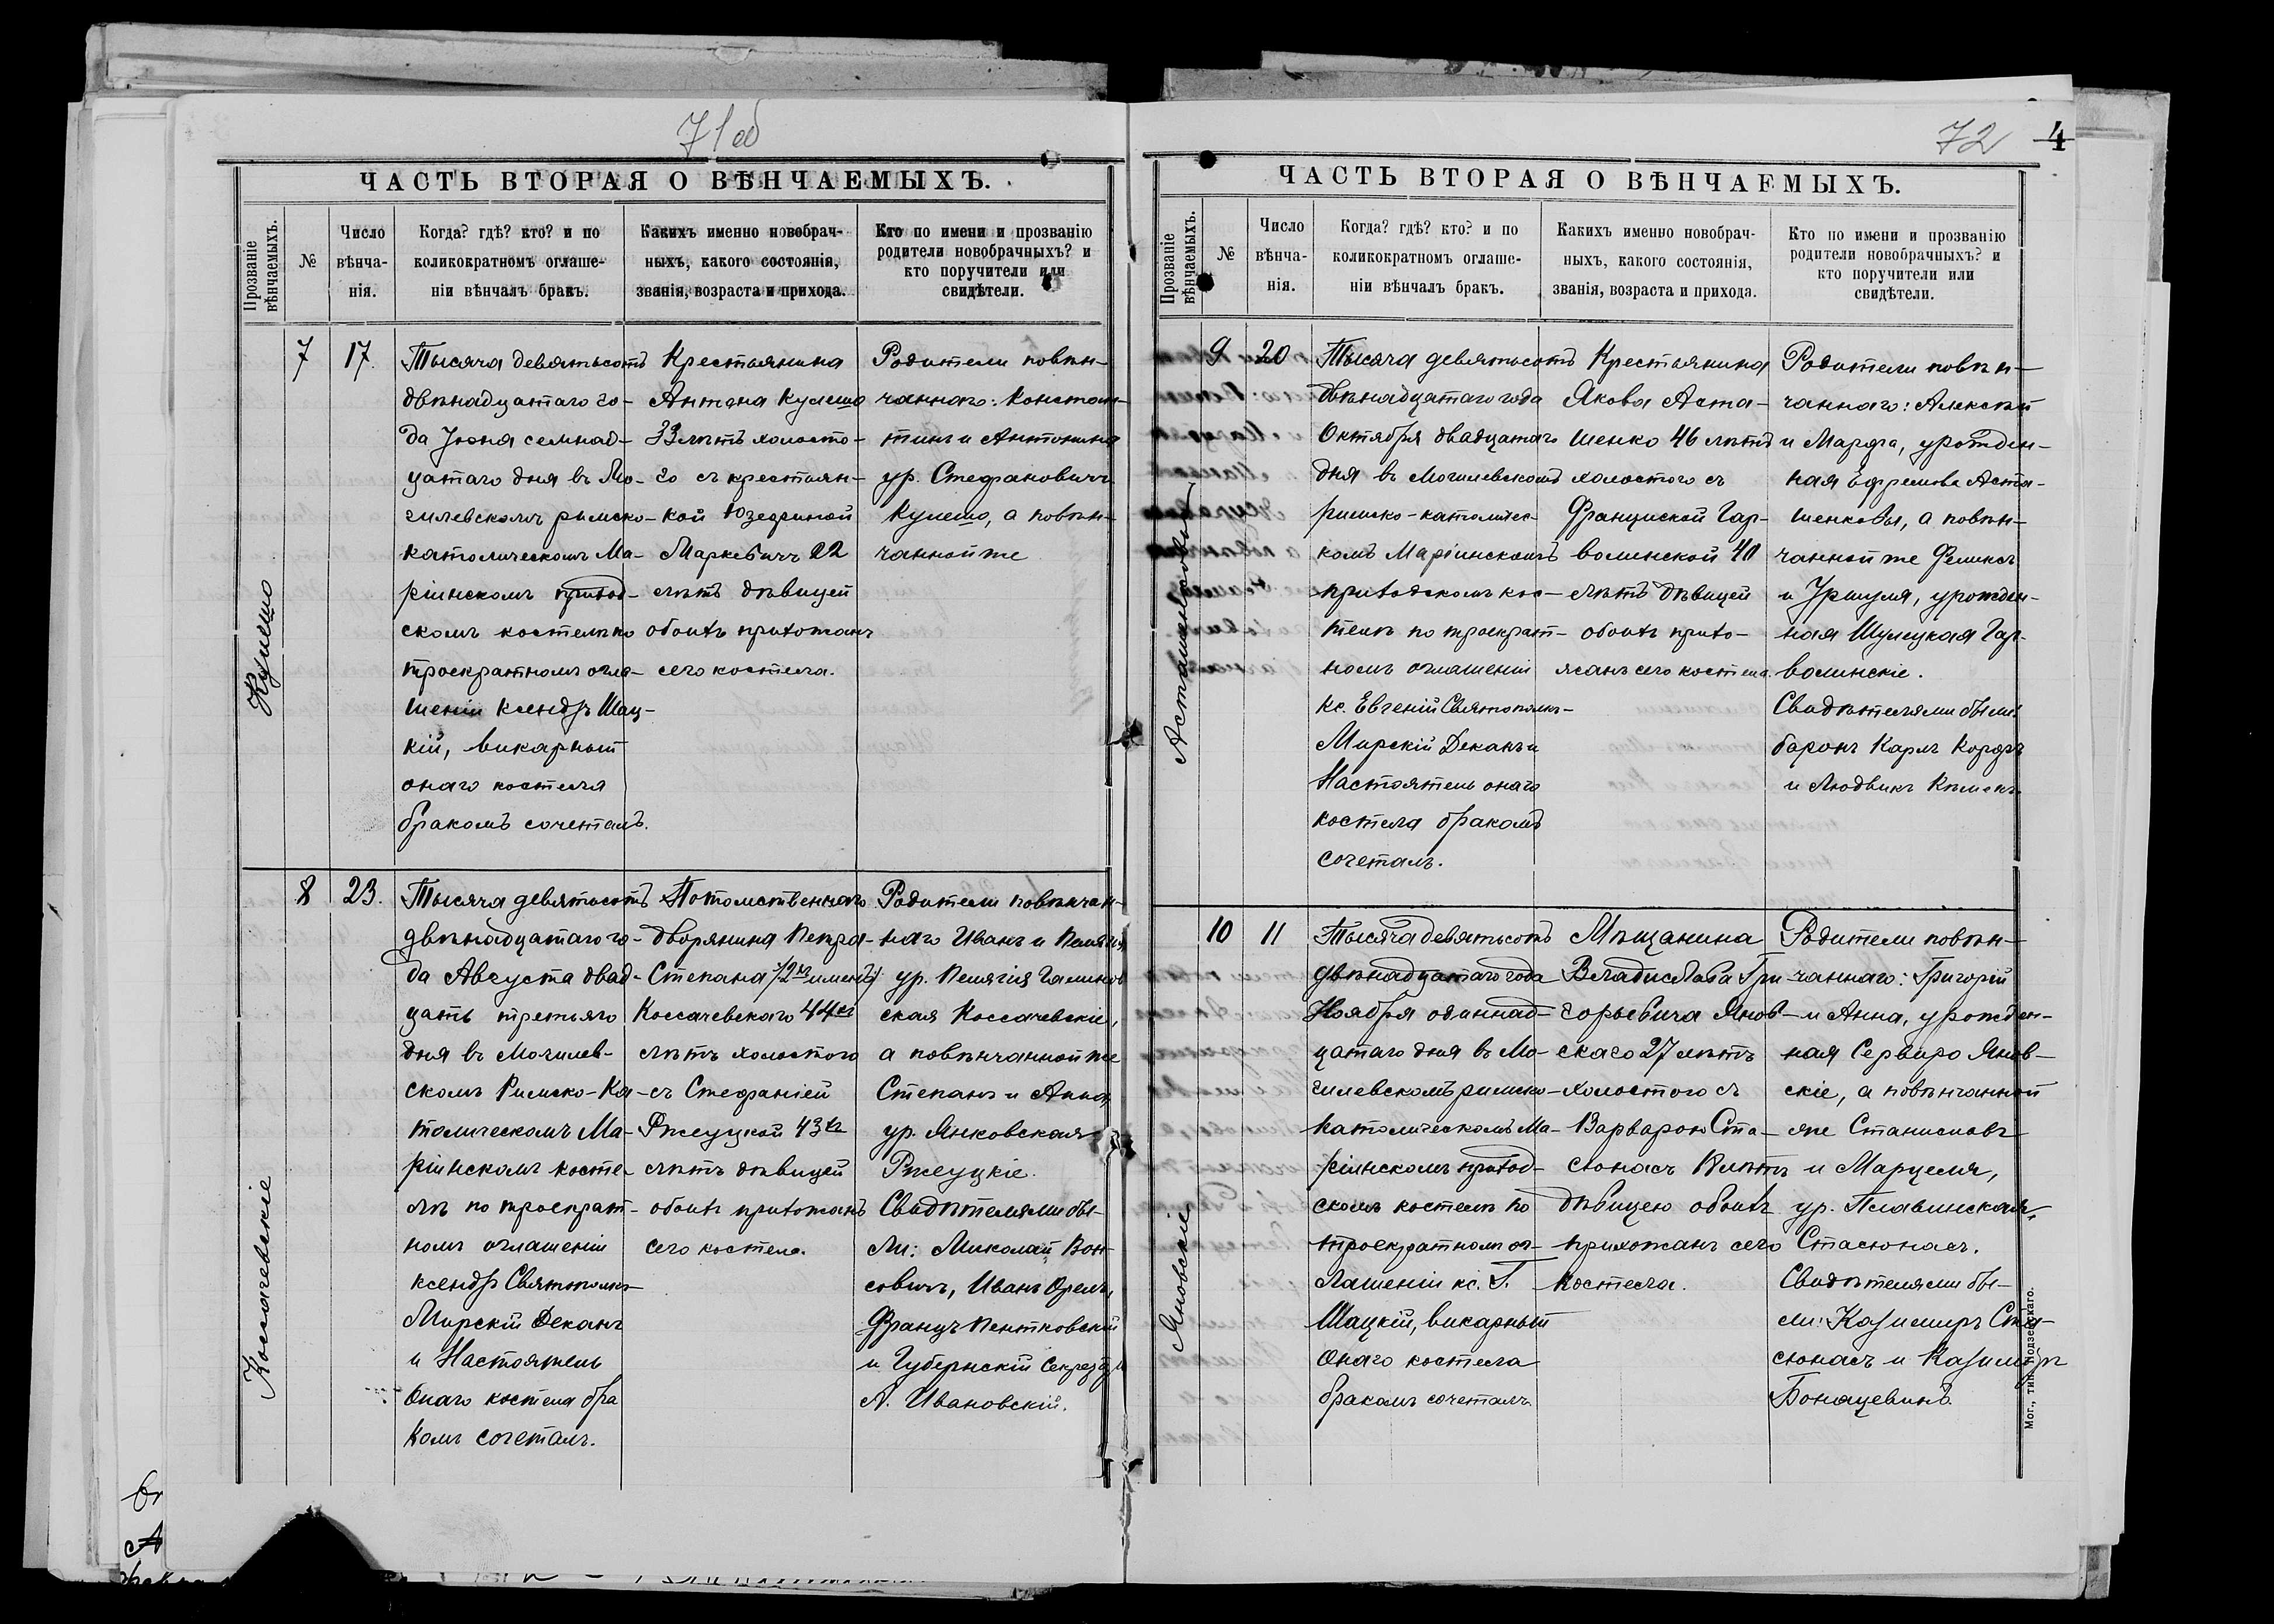 71об
ЧАСТЬ ВТОРАЯ О ВѢНЧАЕМЫХЪ.
Прозваніе
вѣнчаемыхъ.
№
Число
вѣнча-
нія.
Когда? гдѣ? кто? и по
коликократномъ оглаше-
ніи вѣнчалъ бракъ.
Какихъ именно новобрач-
ныхъ, какого состоянія,
званія, возраста и прихода.
Кто по имени и прозванію
родители новобрачныхъ? и
кто поручители или
свидѣтели.
Кулешо
7
17.
Тысяча девятьсотъ
двѣнадцатаго го-
да Іюня семнад-
цатаго дня въ Мо-
гилевскомъ римско-
католическомъ Ма-
ріинскомъ приход-
скомъ костелѣ по
троекратномъ огла-
шеніи ксендзъ Шац-
кій, викарный
онаго костела
бракомъ сочеталъ.
Крестьянина
Антона Кулешо
33 лѣтъ холосто-
го съ крестьян-
кой Юзефиной
Маркевичъ 22
лѣтъ дѣвицей
обоихъ прихожанъ
сего костела.
Родители повѣн-
чаннаго: Констан-
тинъ и Антонина
ур. Стефановичъ
Кулешо, а повѣн-
чанной же
Коссачевскіе
8
23.
Тысяча девятьсотъ
двѣнадцатаго го-
да Августа двад-
цать третьяго
дня въ Могилев-
скомъ Римско-Ка-
толическомъ Ма-
ріинскомъ косте-
лѣ по троекрат-
номъ оглашеніи
ксендзъ Святополкъ-
Мирскій Деканъ
и Настоятель
онаго костела бра
комъ сочеталъ.
Потомственнаго
дворянина Петра-
Степана /2хъ именъ/
Коссачевскаго 44хъ
лѣтъ холостого
съ Стефаніей
Ржеуцкой 43хъ
лѣтъ дѣвицей
обоихъ прихожанъ
сего костела.
Родители повѣнчан-
наго Иванъ и Пелягія
ур. Пелягія Галинов
ская Коссачевскіе,
а повѣнчанной же
Степанъ и Анна,
ур. Янковская
Ржеуцкіе.
Свидѣтелями бы-
ли: Миколай Вон-
совичъ, Иванъ Орелъ,
Францъ Пентковскій
и Губернскій Секретарь
А. Ивановскій.
72
4
ЧАСТЬ ВТОРАЯ О ВѢНЧАЕМЫХЪ.
Прозваніе
вѣнчаемыхъ.
№
Число
вѣнча-
нія.
Когда? гдѣ? кто? и по
коликократномъ оглаше-
ніи вѣнчалъ бракъ.
Какихъ именно новобрач-
ныхъ, какого состоянія,
званія, возраста и прихода.
Кто по имени и прозванію
родители новобрачныхъ? и
кто поручители или
свидѣтели.
Асташенковы
9
20
Тысяча девятьсотъ
двѣнадцатаго года
Октября двадцатаго
дня въ Могилевскомъ
римско-католичес-
комъ Маріинскомъ
приходскомъ кос-
телѣ по троекрат-
номъ оглашеніи
кс. Евгеній Святополкъ-
Мирскій Деканъ и
Настоятель онаго
костела бракомъ
сочеталъ.
Крестьянина
Якова Аста-
шенко 46 лѣтъ
холостого съ
Францишкой Гар-
волинской 40
лѣтъ дѣвицей
обоихъ прихо-
жанъ сего костела.
Родители повѣн-
чаннаго: Алексѣй
и Марфа, урожден-
ная Ефремова Аста-
шенковы, а повѣн-
чанной же Феликсъ
и Уршуля, урожден-
ная Шулецкая Гар-
волинскіе.
Свидѣтелями были:
баронъ Карлъ Корфъ
и Людвикъ
Яновскіе
10
11
Тысяча девятьсотъ
двѣнадцатаго года
Ноября одиннад-
цатаго дня въ Мо-
гилевскомъ римско-
католическомъ Ма-
ріинскомъ приход-
скомъ костелѣ по
троекратномъ ог-
лашеніи кс. Г.
Шацкій, викарный
онаго костела
бракомъ сочеталъ
Мѣщанина
Владислава Гри-
горьевича Янов-
скаго 27 лѣтъ
холостого съ
Варварою Ста-
сюнасъ лѣтъ
дѣвицею обоихъ
прихожанъ сего
костела.
Родители повѣн-
чаннаго: Григорій
и Анна, урожден-
ная Сервиро Янов-
скіе, а повѣнчанной
же Станиславъ
и Марцеля,
ур. Плавинская,
Стасюнасъ.
Свидѣтелями бы-
ли: Казимиръ Ста-
сюнасъ и Казимиръ
Бонацевичъ
Мог., тип. Подземскаго.